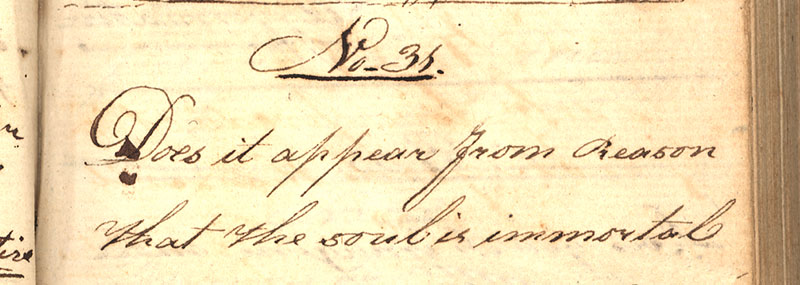 No. 31.
Does it appear from Reason
that the soul is immortal